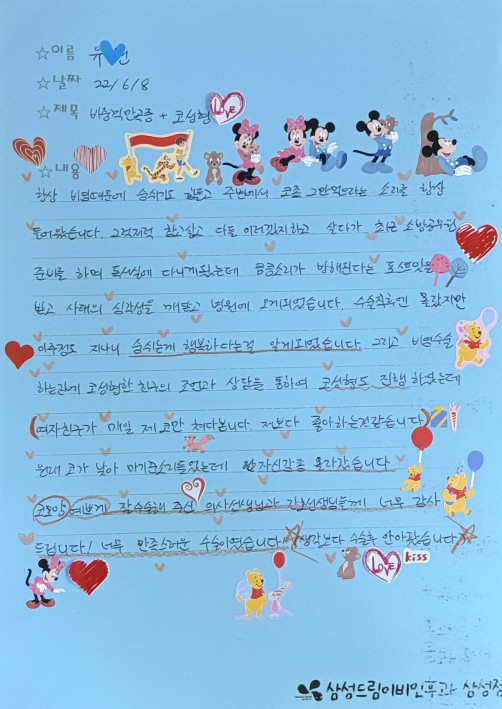 ☆이름 유 현
☆날짜 22/6/8
☆제목 비중격만곡증 + 코성형
LOVE
☆내용
항상 비염때문에 숨쉬기도 힘들고 주변에서 코좀 그만먹으라는 소리를 항상
들어왔습니다. 그럭저럭 참고살고 다들 이러겠지하고 살다가 최근 소방공무원
준비를 하며 독서실에 다니게됬는데 킁킁소리가 방해된다는 포스트잇을
보고 사태의 심각성을 깨닫고 병원에 오게되었습니다. 수술직후엔 몰랐지만
이주정도 지나니 숨쉬는게 행복하다는걸 알게되었습니다. 그리고 비염수술
하는김에 코성형한 친구의 조언과 상담을 통하여 코성형도 진행 하였는데
(여자친구가 매일 제 코만 쳐다봅니다. 저보다 좋아하는것같습니다)
원래 코가 낮아 마기꾼소리들었는데 자신감좀 올라갔습니다
코모양 예쁘게 잘수술해 주신 의사선생님과 간호선생님들께 너무 감사
드립니다! 너무 만족스러운 수술이였습니다! (생각보다 수술후 안아팠습니다)
LOVE kiss
삼성드림이비인후과 삼성점